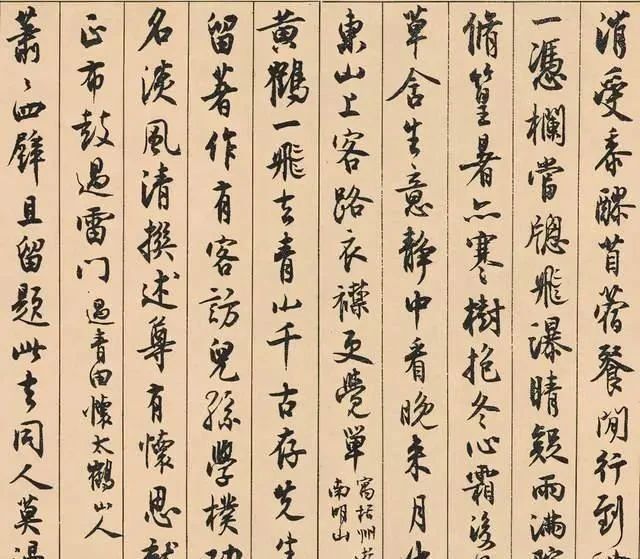 消受黍醪苜蓿餐閒行到
一憑欄當窗飛瀑晴疑雨滿
脩篁暑亦寒樹抱冬心霜後
草含生意靜中看晚來月
東山上客路衣襟更覺單 寓栝州 南明山
黃鶴一飛去青山千古存先生
留著作有客訪兒孫學樸
名淡風清撰述尊有懷思就
正布鼓過雷門 過青田懷太鶴山人
蕭〻四壁且留題此去同人莫